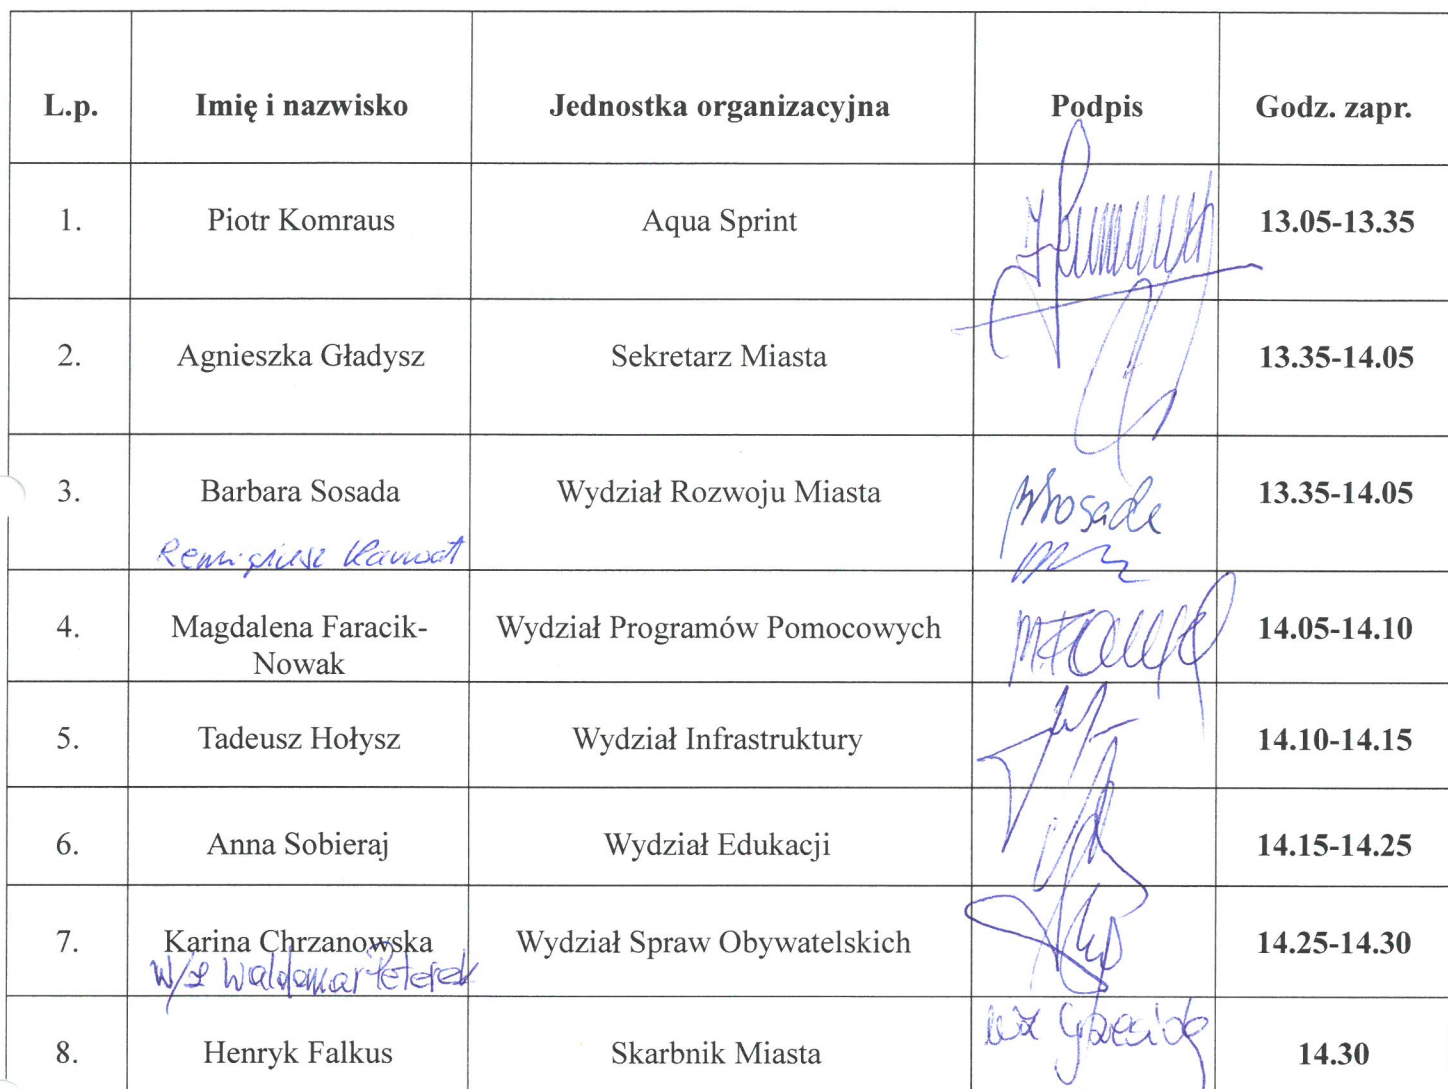 L.p. Imię i nazwisko Jednostka organizacyjna Podpis Godz. zapr.
1. Piotr Komraus Aqua Sprint 13.05-13.35
2. Agnieszka Gładysz Sekretarz Miasta 13.35-14.05
3. Barbara Sosada Wydział Rozwoju Miasta 13.35-14.05
Remigiusz
4. Magdalena Faracik- Wydział Programów Pomocowych 14.05-14.10
Nowak
5. Tadeusz Hołysz Wydział Infrastruktury 14.10-14.15
6. Anna Sobieraj Wydział Edukacji 14.15-14.25
7. Karina Chrzanowska Wydział Spraw Obywatelskich 14.25-14.30
w/z Waldemar Peterek
8. Henryk Falkus Skarbnik Miasta wz 14.30